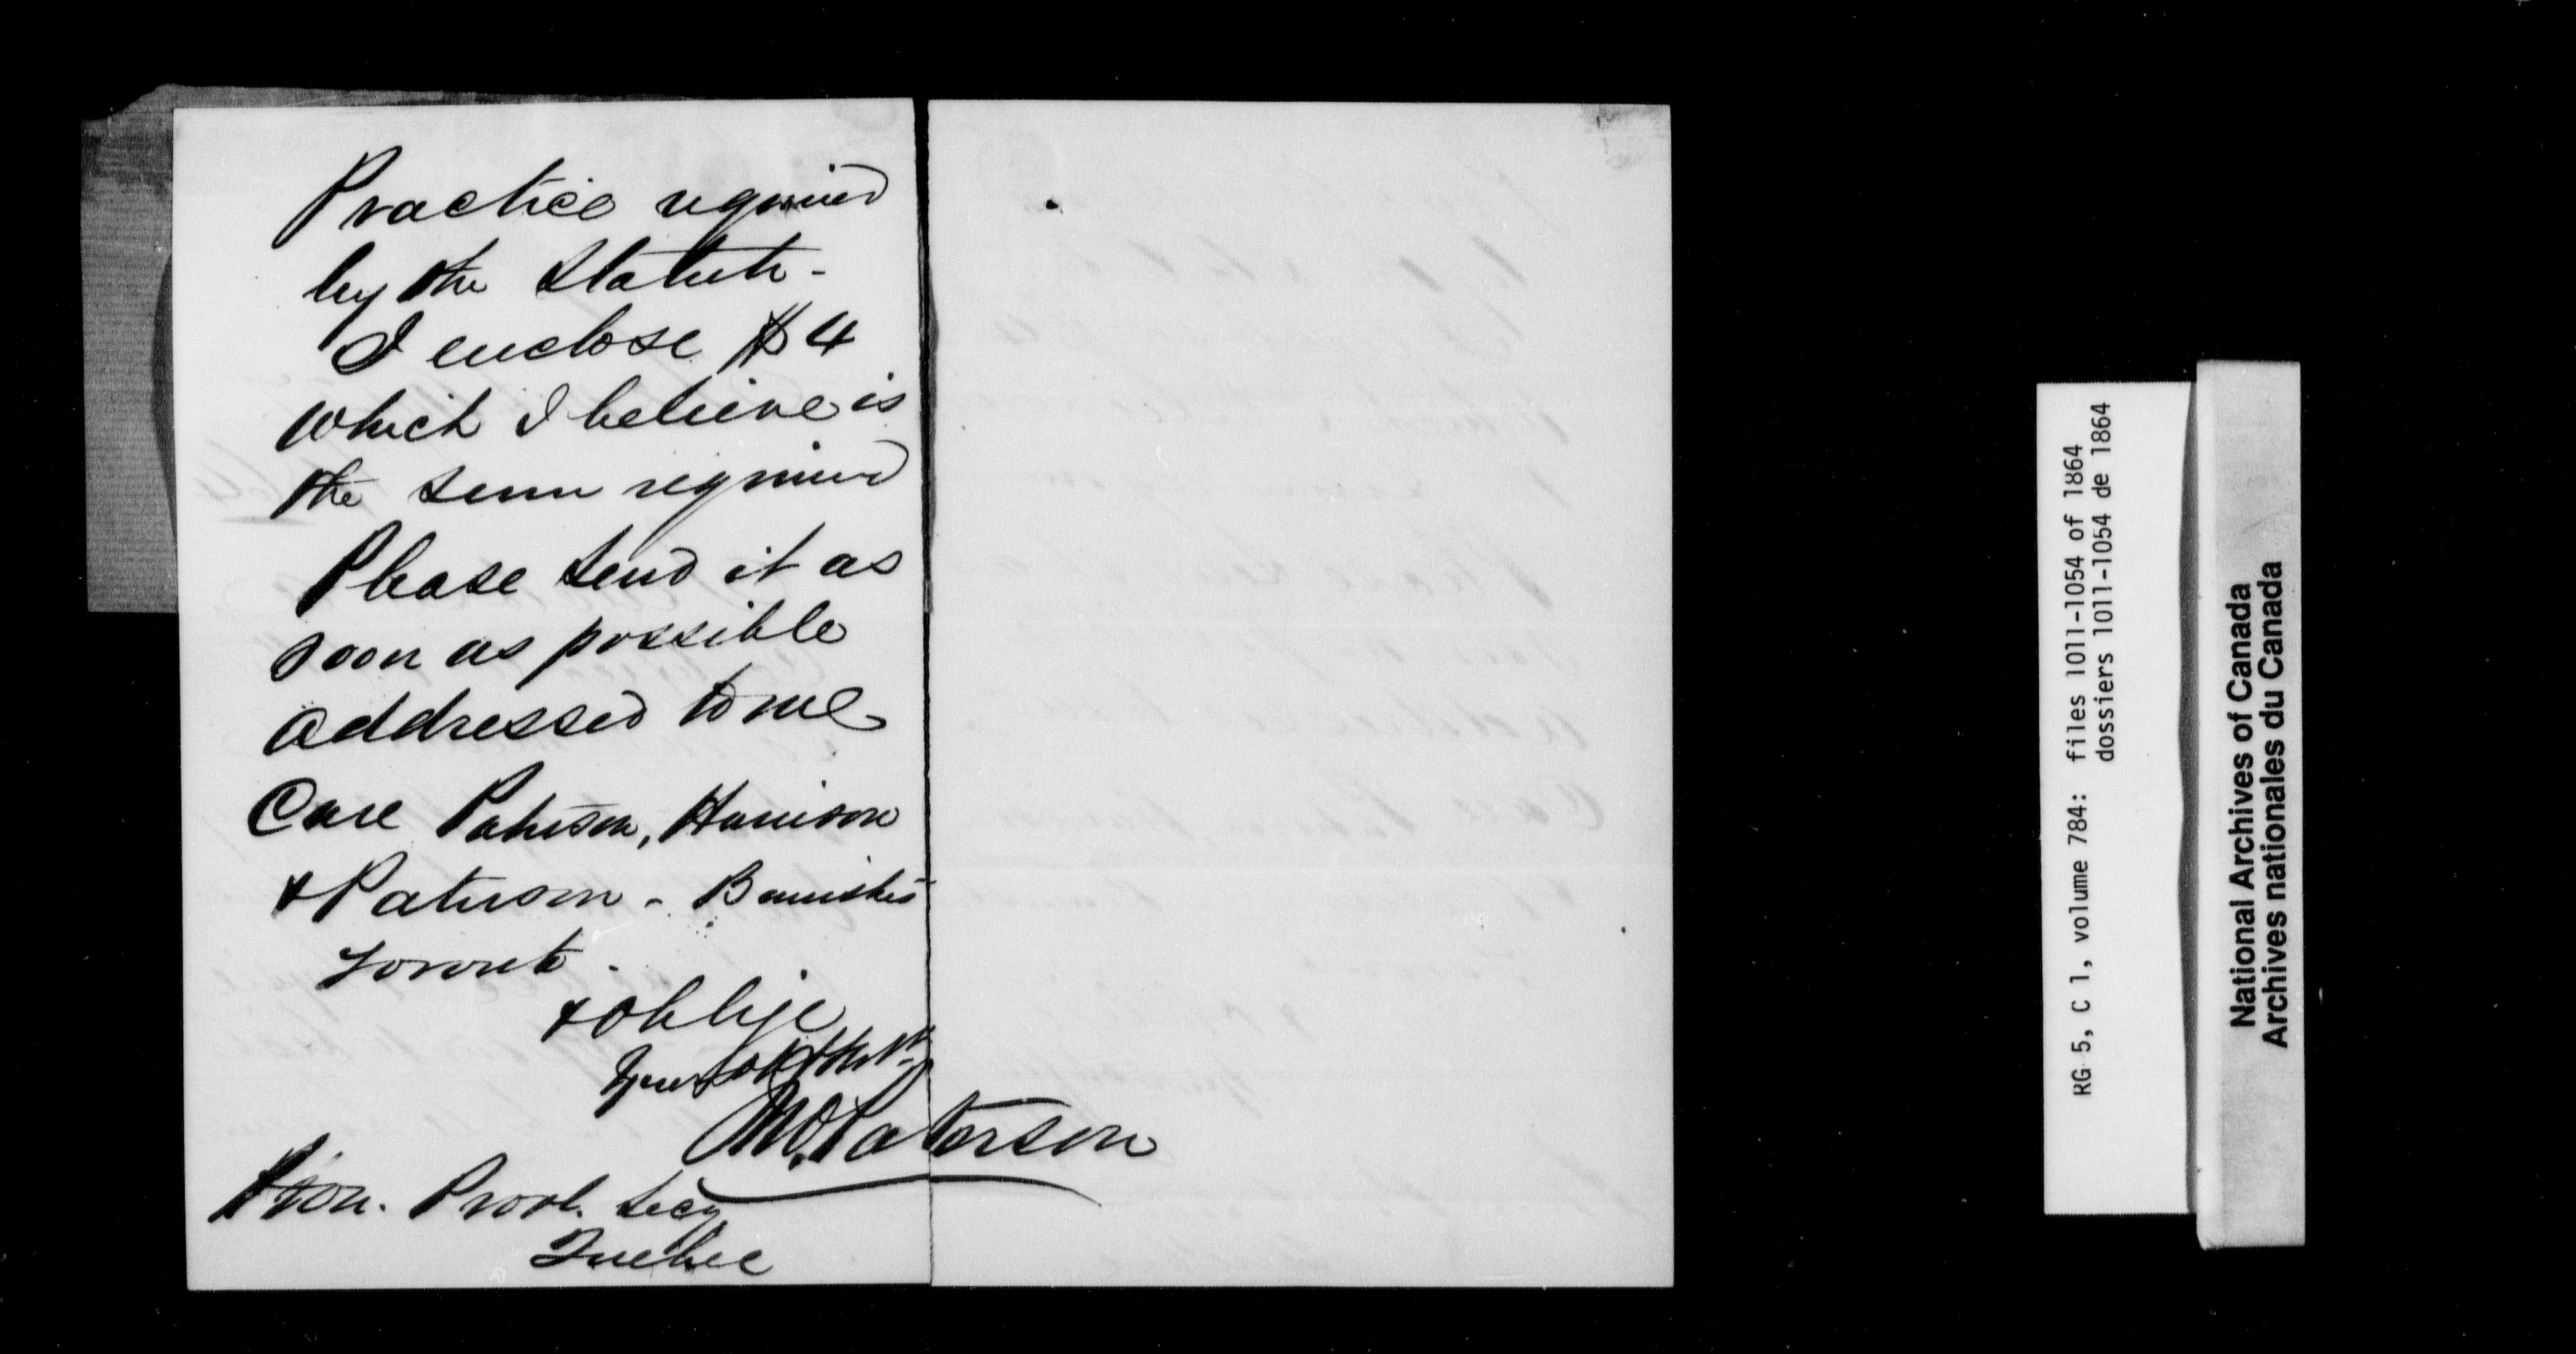 Practice required
by the Statute -
I enclose $4
which I believe is
the sum required
Please send it as
soon as possible
addressed to me
Care Paterson, Harrison
& Paterson - Barristers
Toronto -
& oblige
Your obt Servt
M. Paterson
Hon. Provl. Secy
Quebec
RG 5, C 1, volume 784: files 1011-1054 of 1864
dossiers 1011-1054 de 1864
National Archives of Canada
Archives nationales du Canada